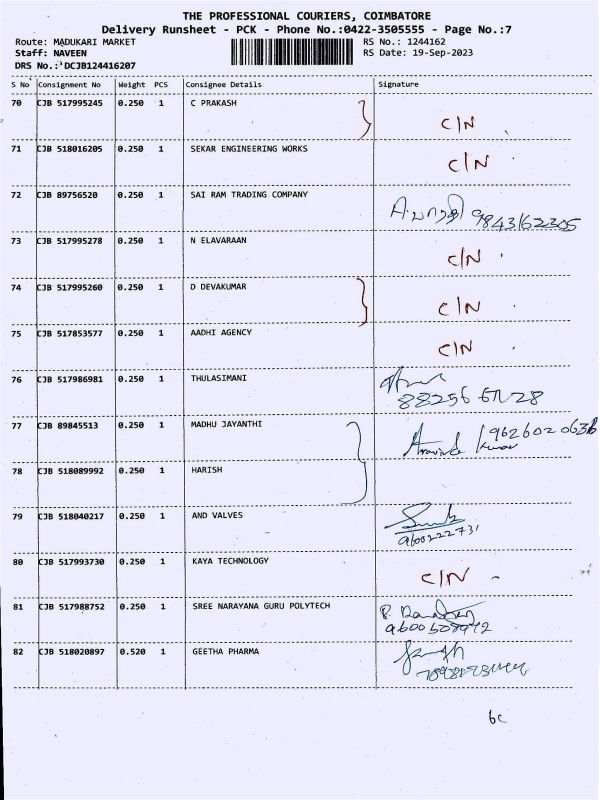 THE PROFESSIONAL COURIERS, COIMBATORE
Delivery Runsheet - PCK - Phone No.:0422-3505555 - Page No.:7
Route: MADUKARI MARKET RS No.: 1244162
Staff: NAVEEN RS Date: 19-Sep-2023
DRS No.: DCJB124416207
S No Consignment No Weight PCS Consignee Details Signature
70 CJB 517995245 0.250 1 C PRAKASH C/N
71 CJB 518016205 0.250 1 SEKAR ENGINEERING WORKS C/N
72 CJB 89756520 0.250 1 SAI RAM TRADING COMPANY 9843162305
73 CJB 517995278 0.250 1 N ELAVARAAN C/N
74 CJB 517995260 0.250 1 D DEVAKUMAR C/N
75 CJB 517853577 0.250 1 AADHI AGENCY C/N
76 CJB 517986981 0.250 1 THULASIMANI
77 CJB 89845513 0.250 1 MADHU JAYANTHI Aravind Kumar
78 CJB 518089992 0.250 1 HARISH
79 CJB 518040217 0.250 1 AND VALVES
80 CJB 517993730 0.250 1 KAYA TECHNOLOGY C/N
81 CJB 517988752 0.250 1 SREE NARAYANA GURU POLYTECH
82 CJB 518020897 0.520 1 GEETHA PHARMA